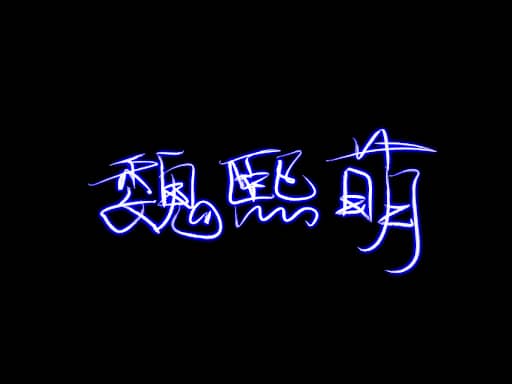 魏熙萌